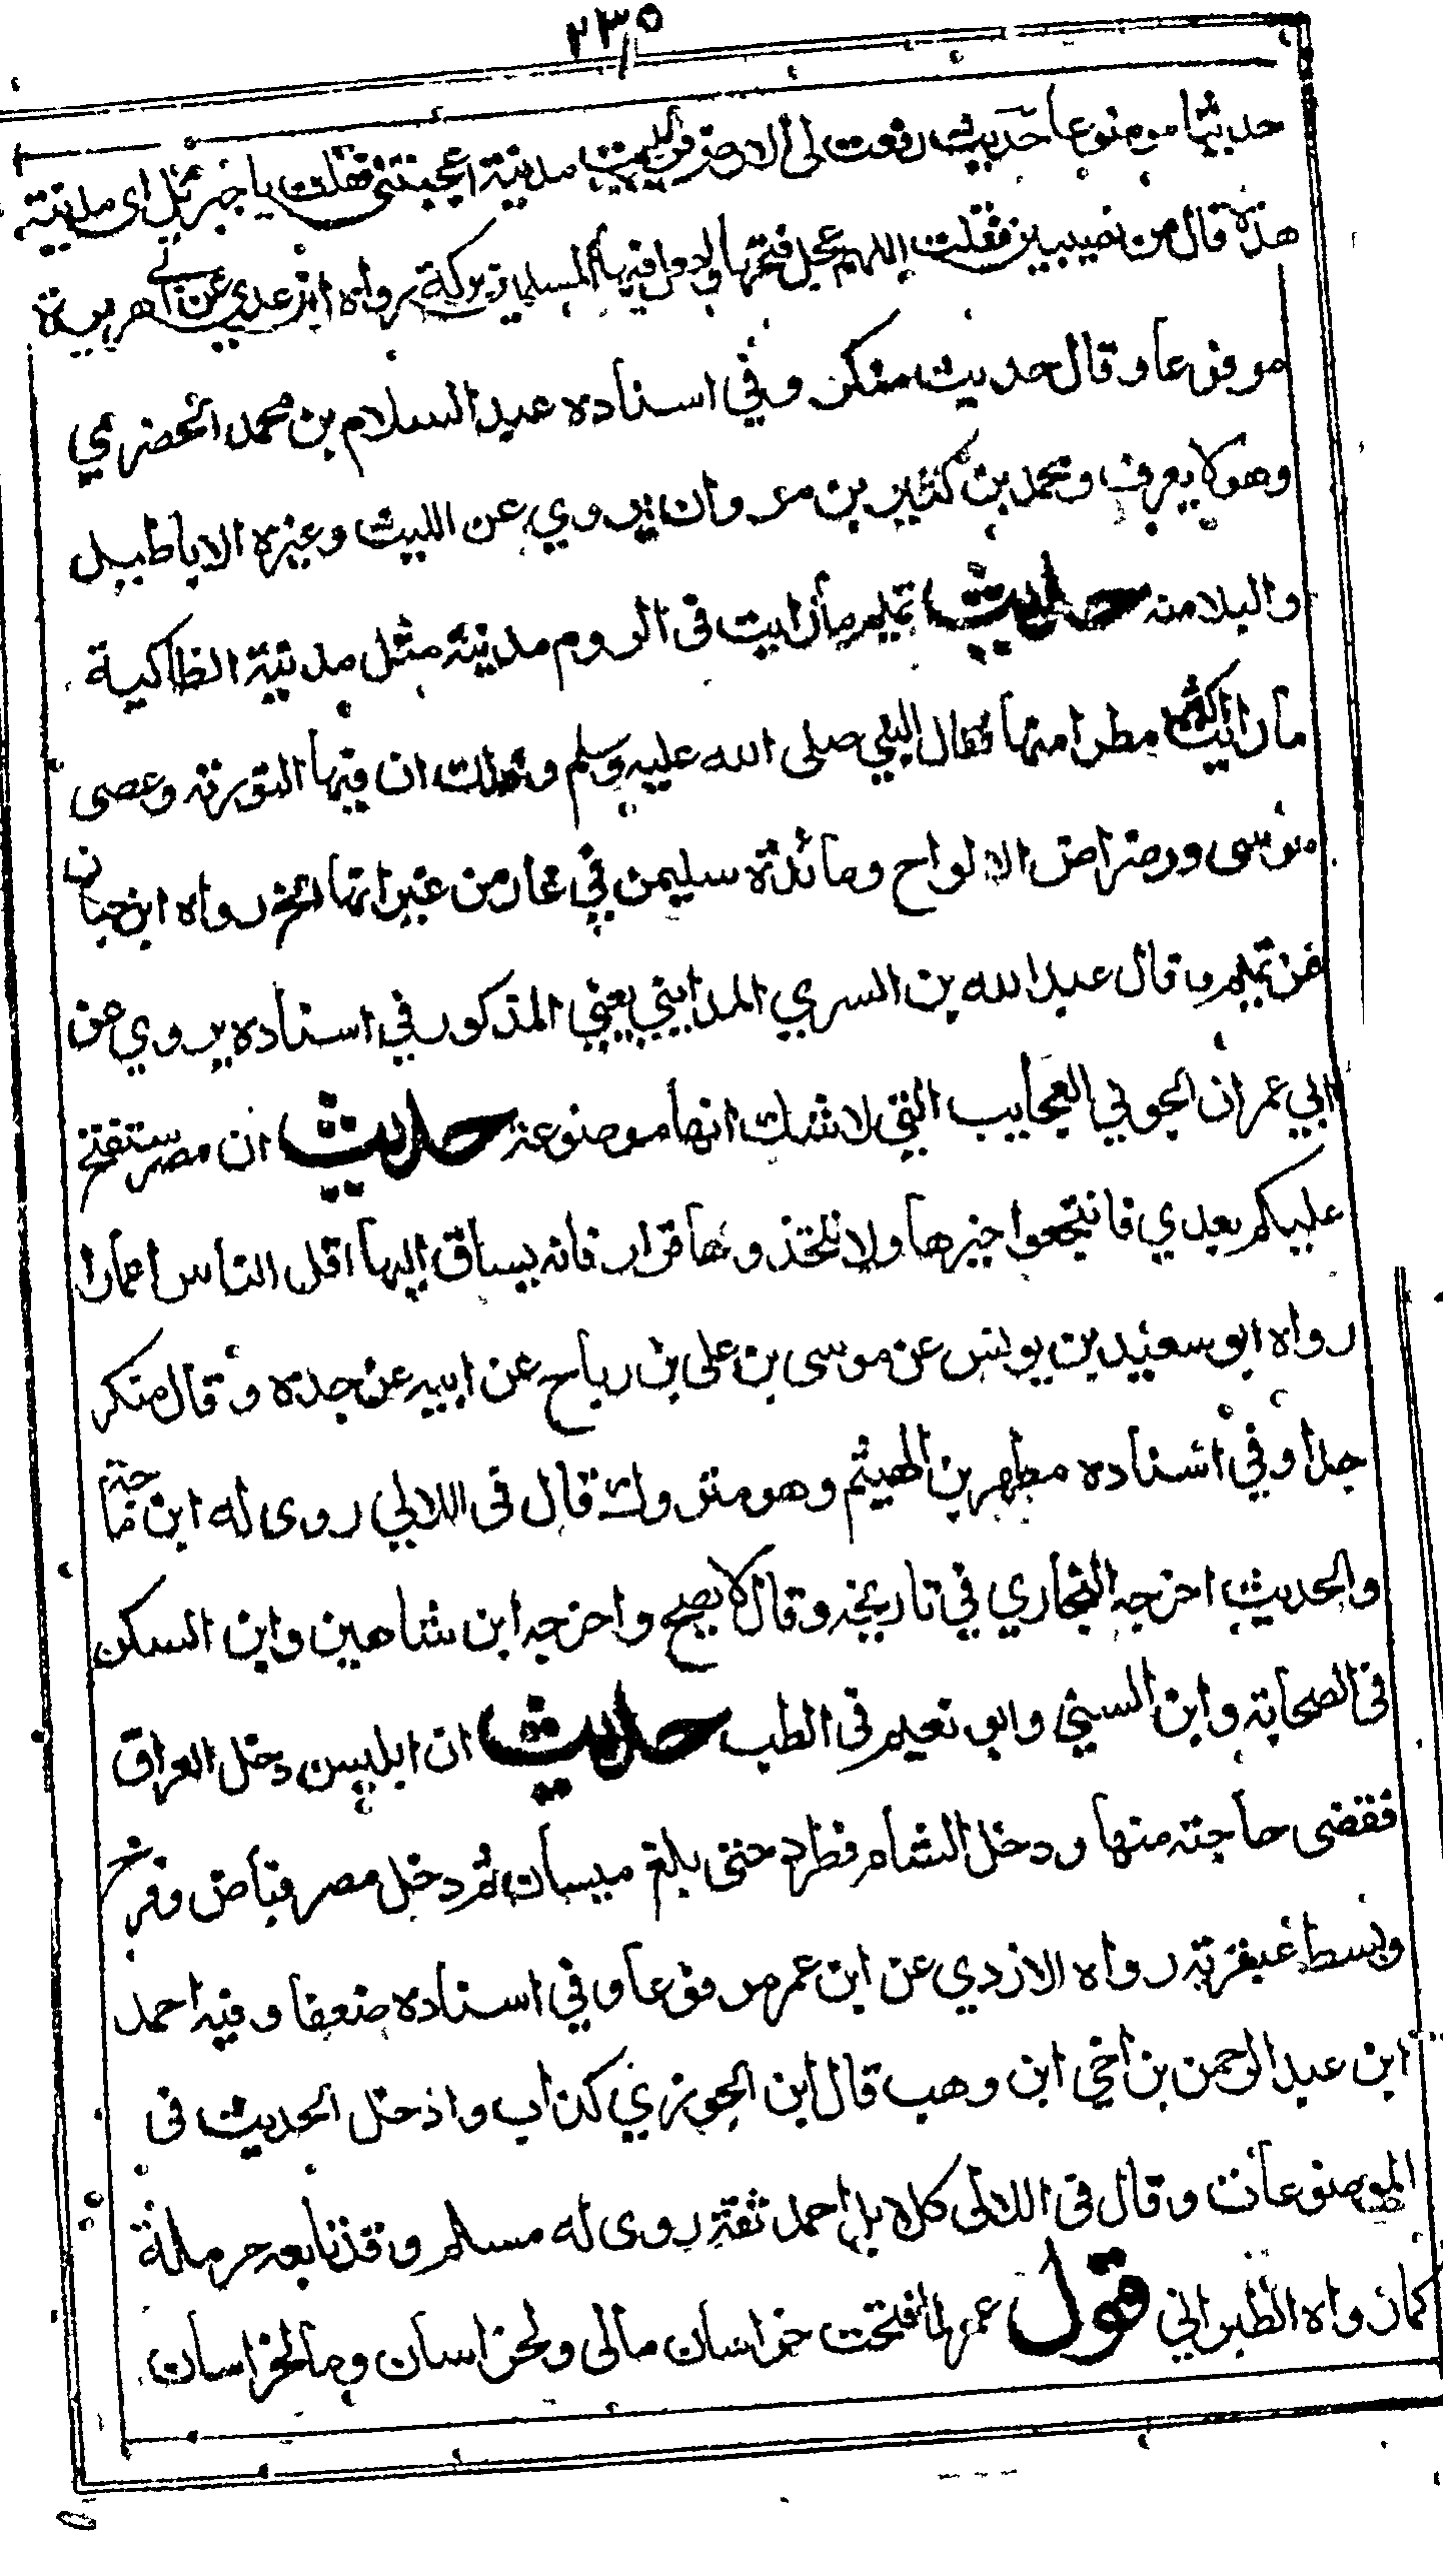 ٢٣٥
حديثا موضوعا حديث رفعت لي الارض فرايت مدينة اعجبتني فقلت يا جبرئيل اي مدينة
هذه قال من نصيبين فقلت اللهم عجل فتحها واجعل فيها للمسلمين بركة رواه ابن عدي عن ابي هريرة
مرفوعا وقال حديث منكر وفي اسناده عبد السلام بن محمد الحضرمي
وهو لا يعرف ومحمد بن كثير بن مروان يروي عن الليث وغيره الاباطيل
والبلا منه حديث تميم ما رايت في الروم مدينة مثل مدينة انطاكية
ما رايت اكثر مطرا منها فقال النبي صلى الله عليه وسلم وذلك ان فيها التورية وعصى
موسى ورضراض الالواح ومائدة سليمن في غار من غيرانها الخ رواه ابن حبان
عن تميم وقال عبد الله بن السري المدايني يعني المذكور في اسناده يروي عن
ابي عمران الجوني العجايب التي لا شك انها موضوعة حديث ان مصر ستفتح
عليكم بعدي فانتجعوا خيرها ولا تتخذوها قرار فانه يساق اليها اقل الناس اعمارا
رواه ابو سعيد بن يونس عن موسى بن علي بن رباح عن ابيه عن جده وقال منكر
جدا وفي اسناده مطهر بن الهيثم وهو متروك قال في اللالي روى له ابن ماجة
والحديث اخرجه البخاري في تاريخه وقال لا يصح واخرجه ابن شاهين وابن السكن
في الصحابة وابن السني وابو نعيم في الطب حديث ان ابليس دخل العراق
فقضى حاجته منها ودخل الشام فطرد حتى بلغ ميسان ثم دخل مصر فباض وفرخ
وبسط عبقريته رواه الازدي عن ابن عمر مرفوعا وفي اسناده ضعفا وفيه احمد
ابن عبد الرحمن بن اخي ابن وهب قال ابن الجوزي كذاب واذخل الحديث في
الموضوعات وقال في اللالى كلا بل احمد ثقة روى له مسلم وقد تابعه حرملة
كما رواه الطبراني قول عمر لما فتحت خراسان مالى ولخراسان وما لخراسان